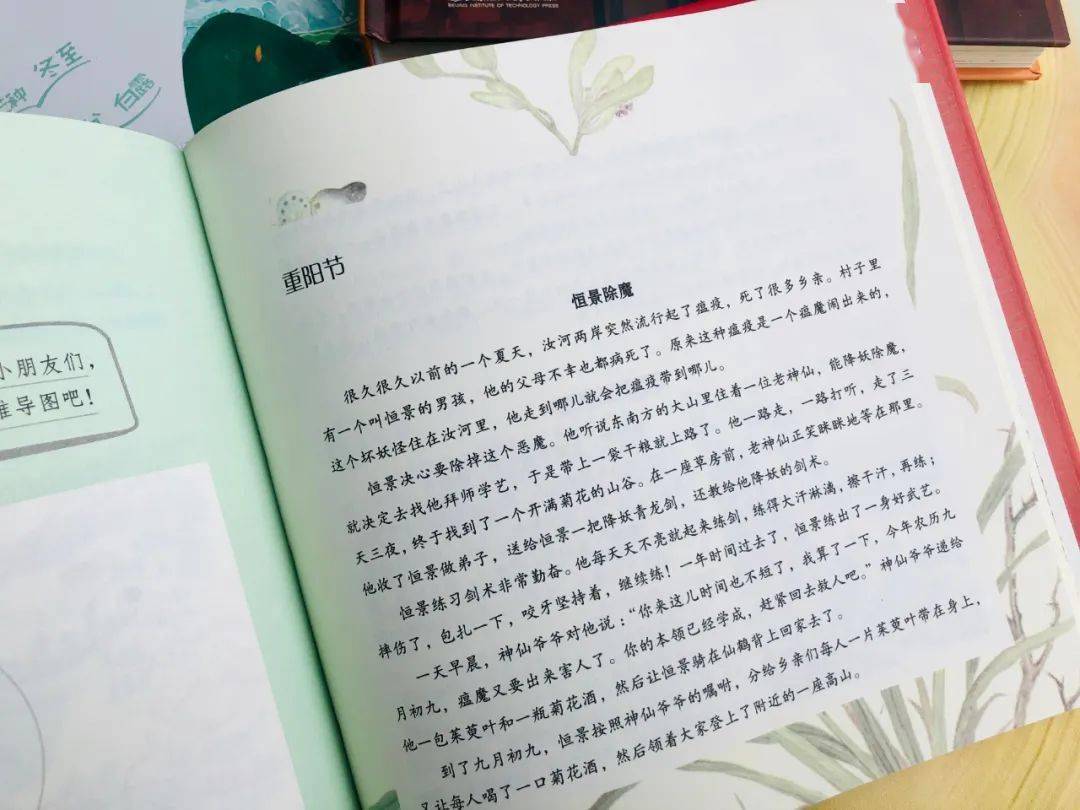 BEIJING INSTITUTE OF TECHNOLOGY PRESS
种 冬至
白露
小朋友们，
维导图吧！
重阳节
恒景除魔
很久很久以前的一个夏天，汝河两岸突然流行起了瘟疫，死了很多乡亲。村子里
有一个叫恒景的男孩，他的父母不幸也都病死了。原来这种瘟疫是一个瘟魔闹出来的，
这个坏妖怪住在汝河里，他走到哪儿就会把瘟疫带到哪儿。
恒景决心要除掉这个恶魔。他听说东南方的大山里住着一位老神仙，能降妖除魔，
就决定去找他拜师学艺，于是带上一袋干粮就上路了。他一路走，一路打听，走了三
天三夜，终于找到了一个开满菊花的山谷。在一座草房前，老神仙正笑眯眯地等在那里。
他收了恒景做弟子，送给恒景一把降妖青龙剑，还教给他降妖的剑术。
恒景练习剑术非常勤奋。他每天天不亮就起来练剑，练得大汗淋漓，擦干汗，再练；
摔伤了，包扎一下，咬牙坚持着，继续练！一年时间过去了，恒景练出了一身好武艺。
一天早晨，神仙爷爷对他说：“你来这儿时间也不短了，我算了一下，今年农历九
月初九，瘟魔又要出来害人了。你的本领已经学成，赶紧回去救人吧。”神仙爷爷递给
他一包茱萸叶和一瓶菊花酒，然后让恒景骑在仙鹤背上回家去了。
到了九月初九，恒景按照神仙爷爷的嘱咐，分给乡亲们每人一片茱萸叶带在身上，
又让每人喝了一口菊花酒，然后领着大家登上了附近的一座高山。